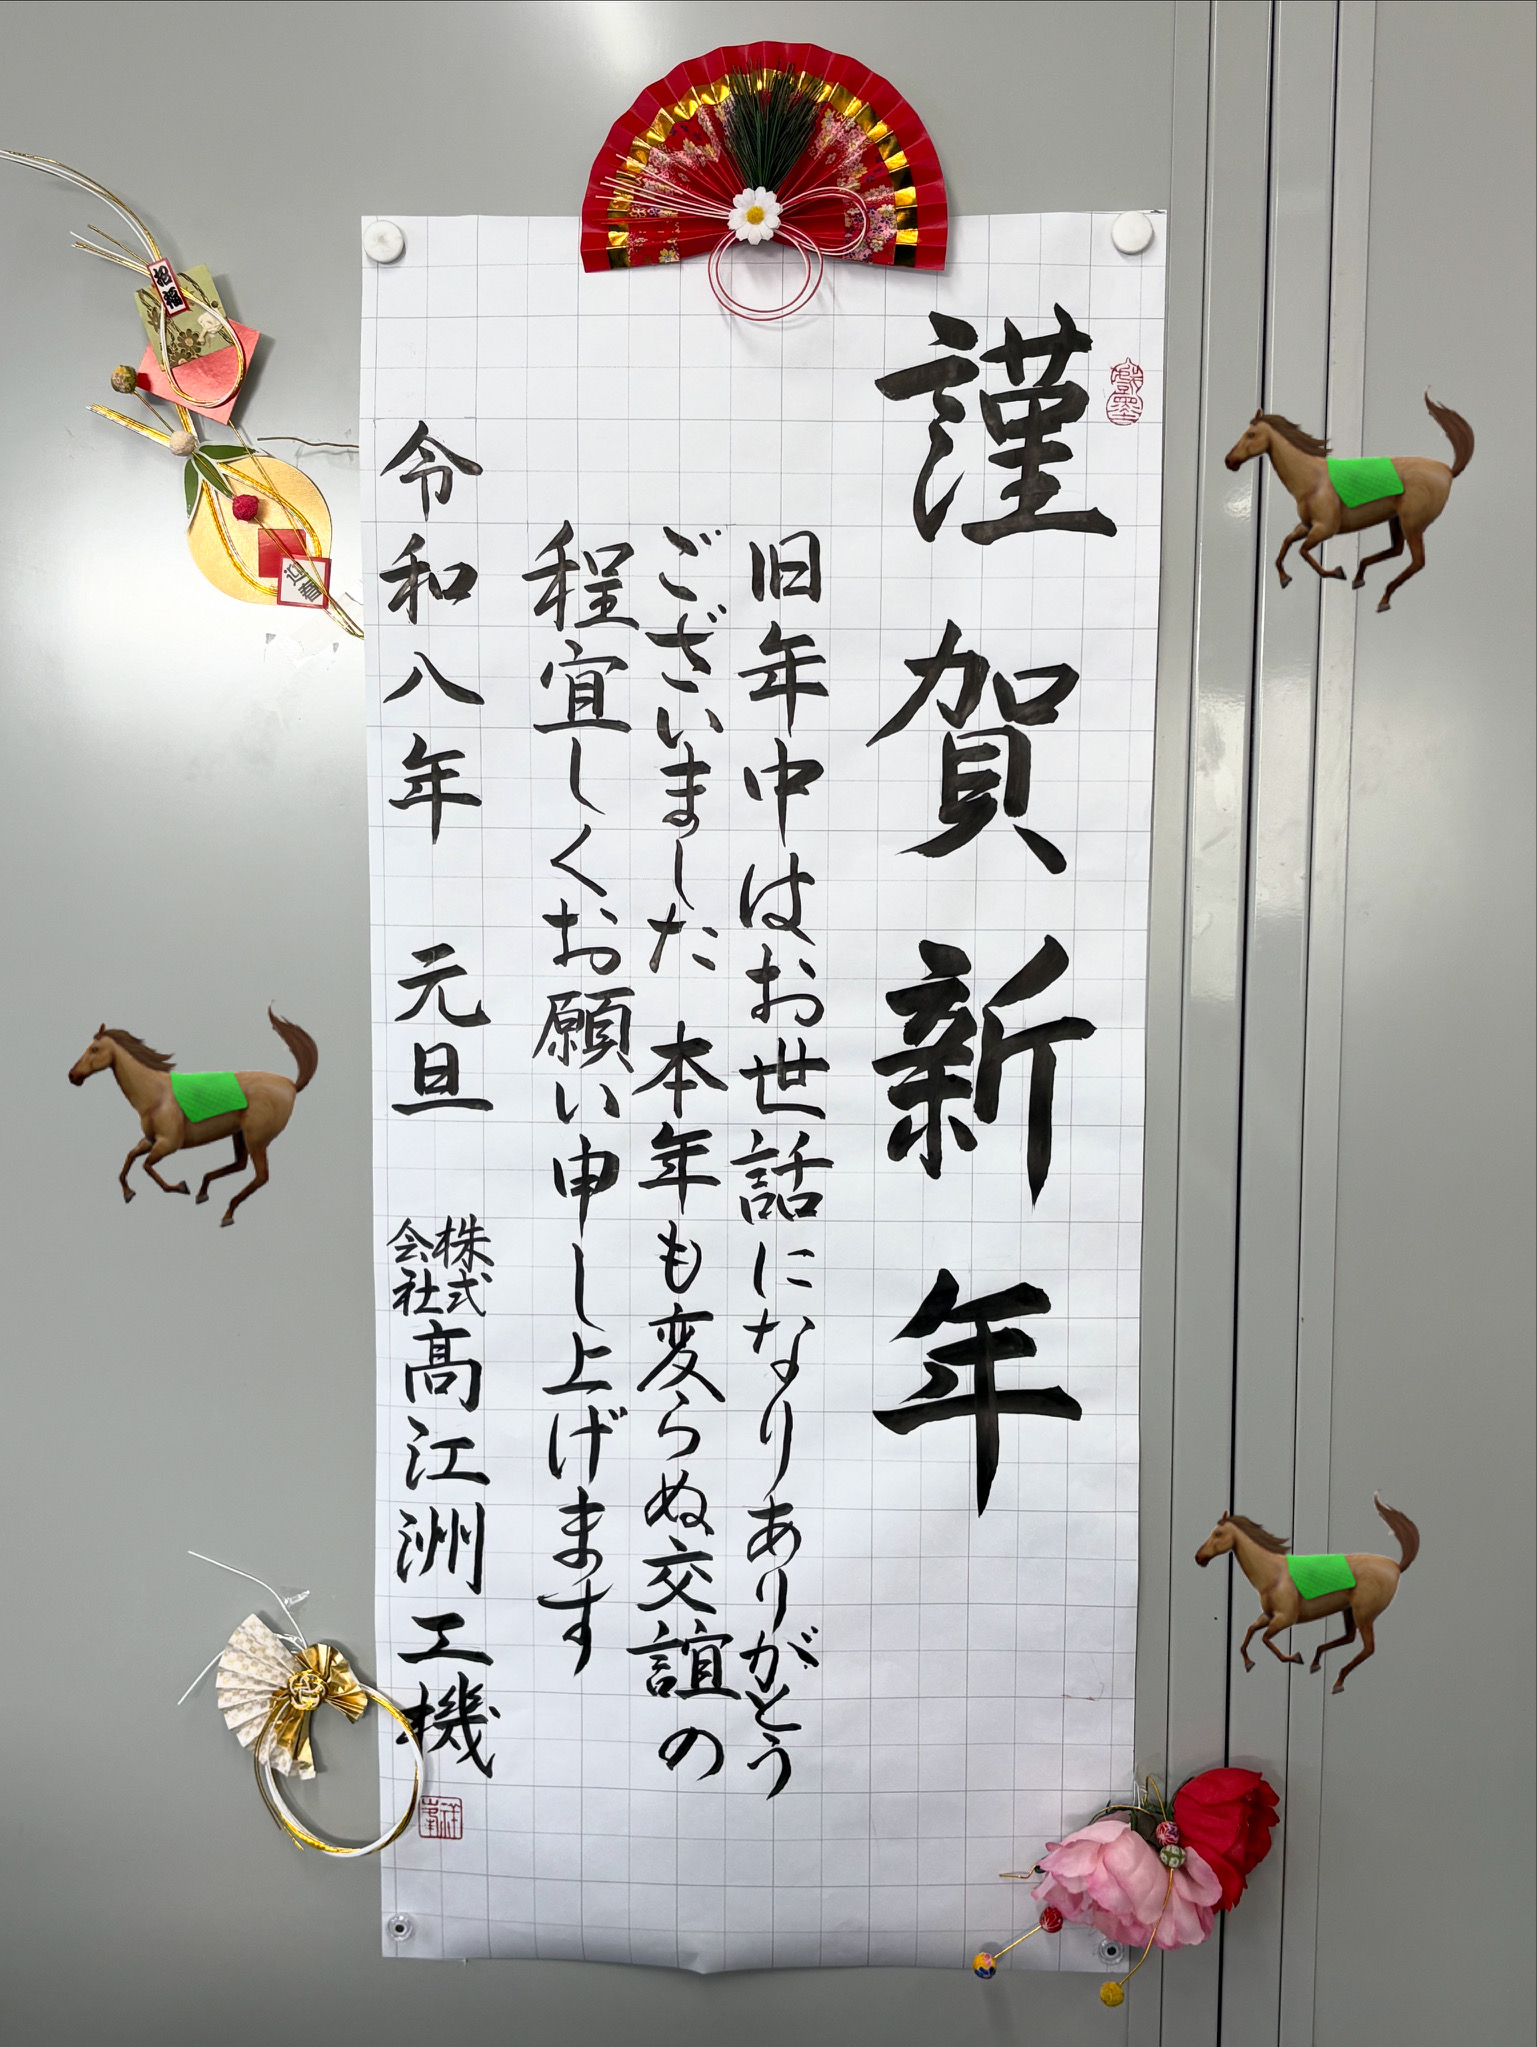 謹賀新年
旧年中はお世話になりありがとう
ございました 本年も変らぬ交誼の
程宜しくお願い申し上げます
令和八年 元旦 株式会社髙江洲工機
迎春